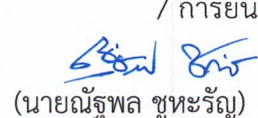 / การยน
(นายณัฐพล ชูหะรัญ)